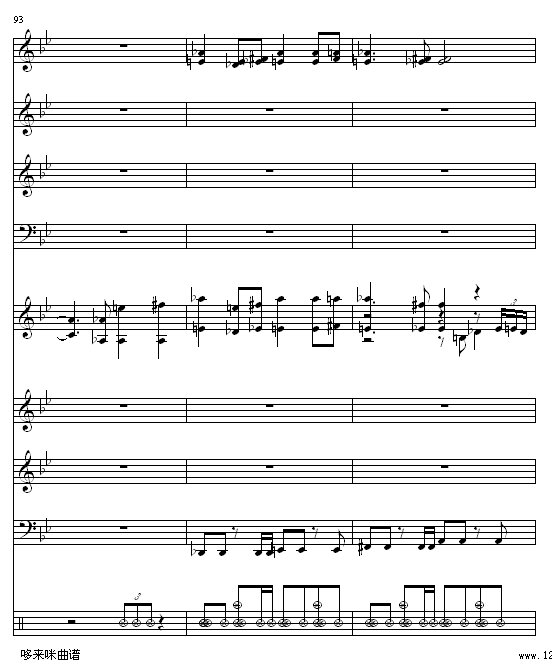 93
哆来咪曲谱
www.12